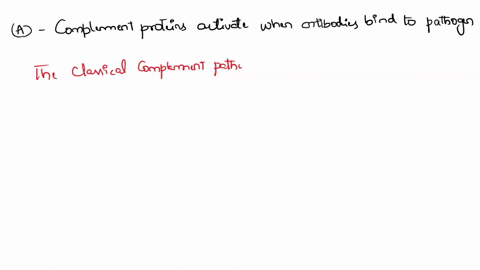 (A) - Complement proteins activate when antibodies bind to pathogen
The Classical Complement pathw